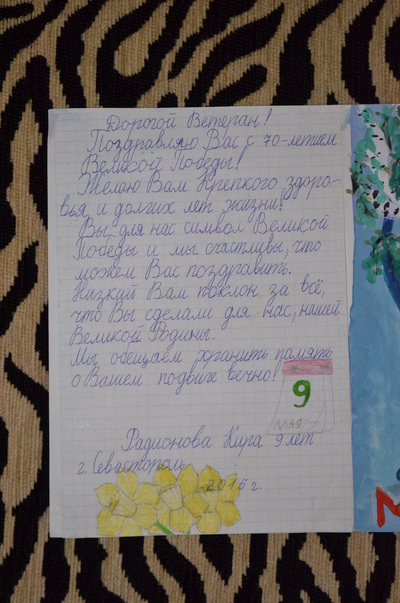 Дорогой Ветеран!
Поздравляю Вас с 70-летием
Великой Победы!
Желаю Вам Крепкого здоро-
вья и долгих лет жизни!
Вы для нас символ Великой
Победы и мы счастливы, что
можем Вас поздравить.
Низкий Вам поклон за всё,
что Вы сделали для нас, нашей
Великой Родины.
Мы обещаем хранить память
о Вашем подвиге вечно!
9
мая
Радионова Кира 9 лет
г. Севастополь
2015 г.